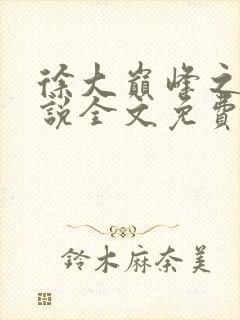 徐大巔峰之
說全文免費
鈴木麻奈美